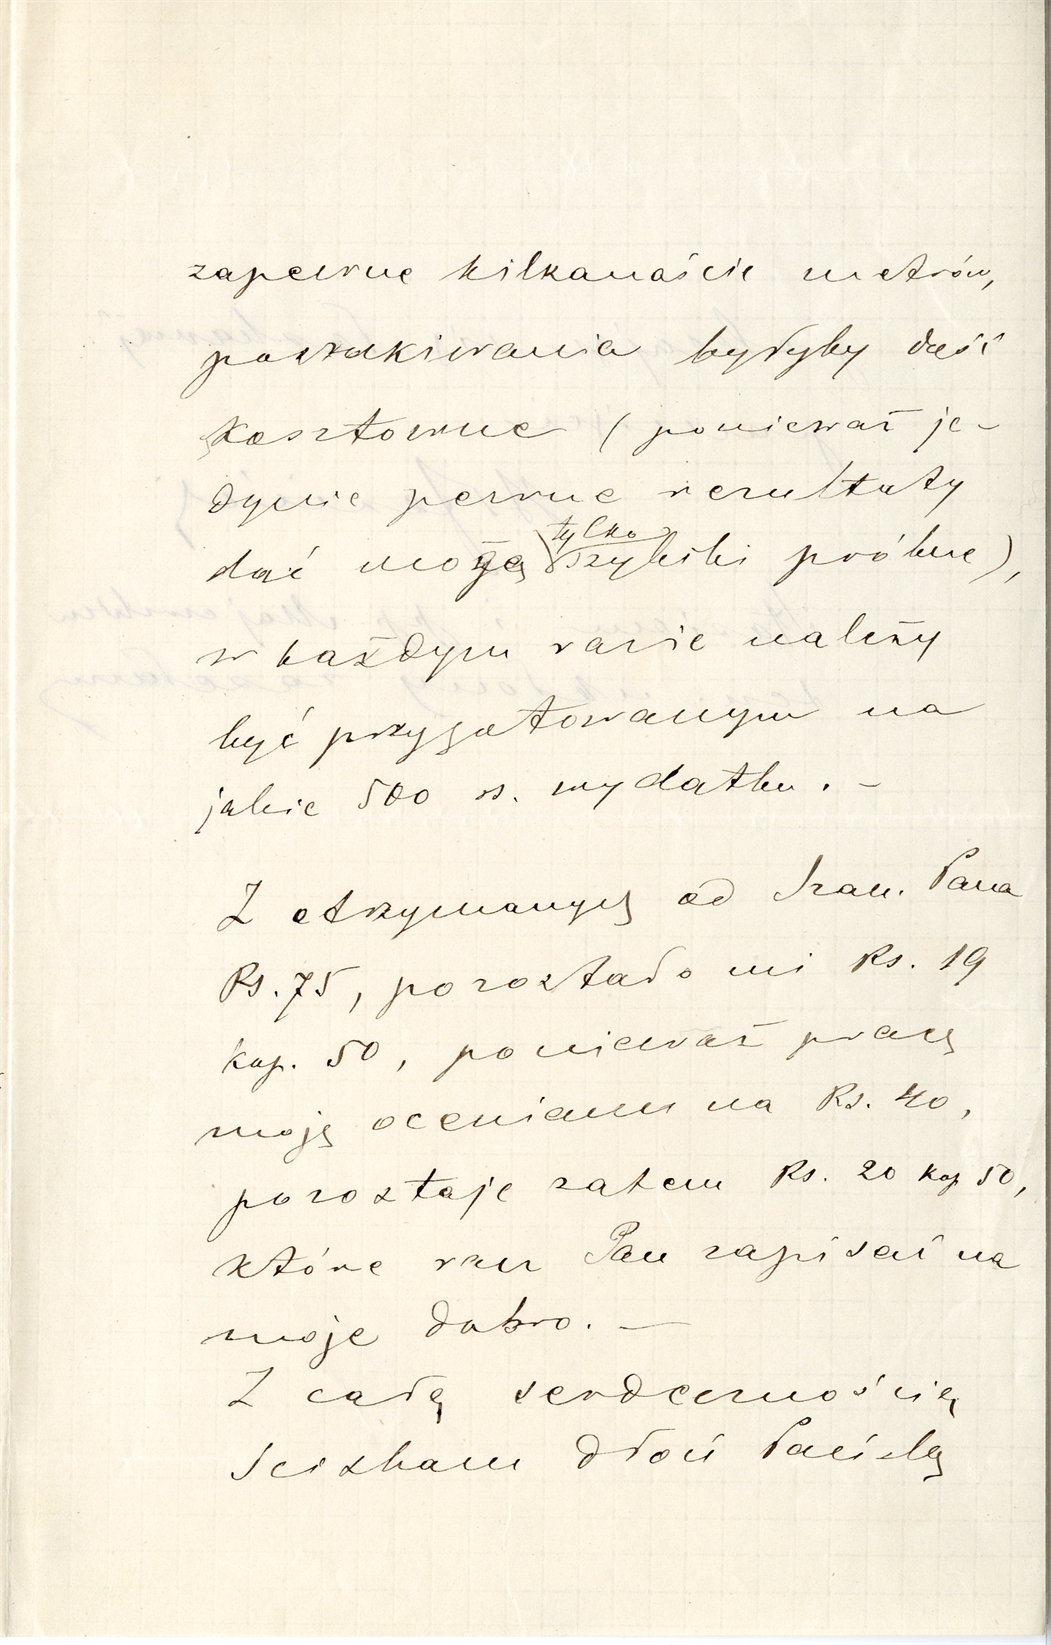 zapewne kilkanaście metrów,
poszukiwania byłyby dość
kosztowne (ponieważ je-
dynie pewne rezultaty
dać mogą tylko szybiki próbne),
w każdym razie należy
być przygotowanym na
jakie 500 rs. wydatku. –
Z otrzymanych od Szan. Pana
Rs. 75, pozostało mi Rs. 19
kop. 50, ponieważ pracę
moję oceniam na Rs. 40,
pozostaje zatem Rs. 20 kop 50,
które racz Pan zapisać na
moje dobro. —
Z całą serdecznością
ściskam dłoń Pańską